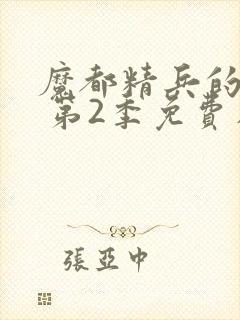 魔都精兵的
第2季免費
張亞中